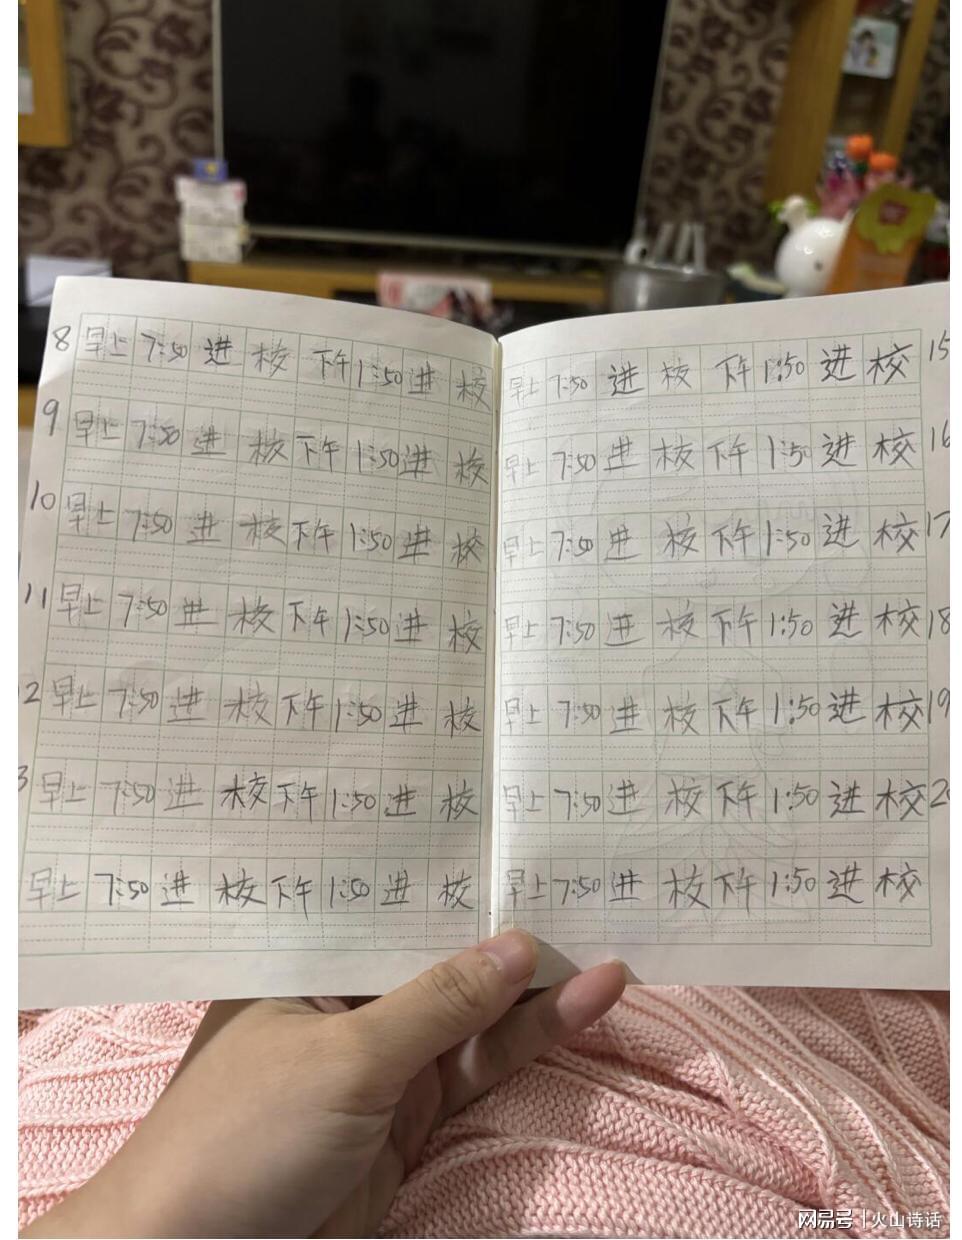 8 早上 7:50 进校 下午 1:50 进校
9 早上 7:50 进校 下午 1:50 进校
10 早上 7:50 进校 下午 1:50 进校
11 早上 7:50 进校 下午 1:50 进校
2 早上 7:50 进校 下午 1:50 进校
3 早上 7:50 进校 下午 1:50 进校
早上 7:50 进校 下午 1:50 进校
早上 7:50 进校 下午 1:50 进校 15
早上 7:50 进校 下午 1:50 进校 16
早上 7:50 进校 下午 1:50 进校 17
早上 7:50 进校 下午 1:50 进校 18
早上 7:50 进校 下午 1:50 进校 19
早上 7:50 进校 下午 1:50 进校 2
早上 7:50 进校 下午 1:50 进校
网易号 | 火山诗话